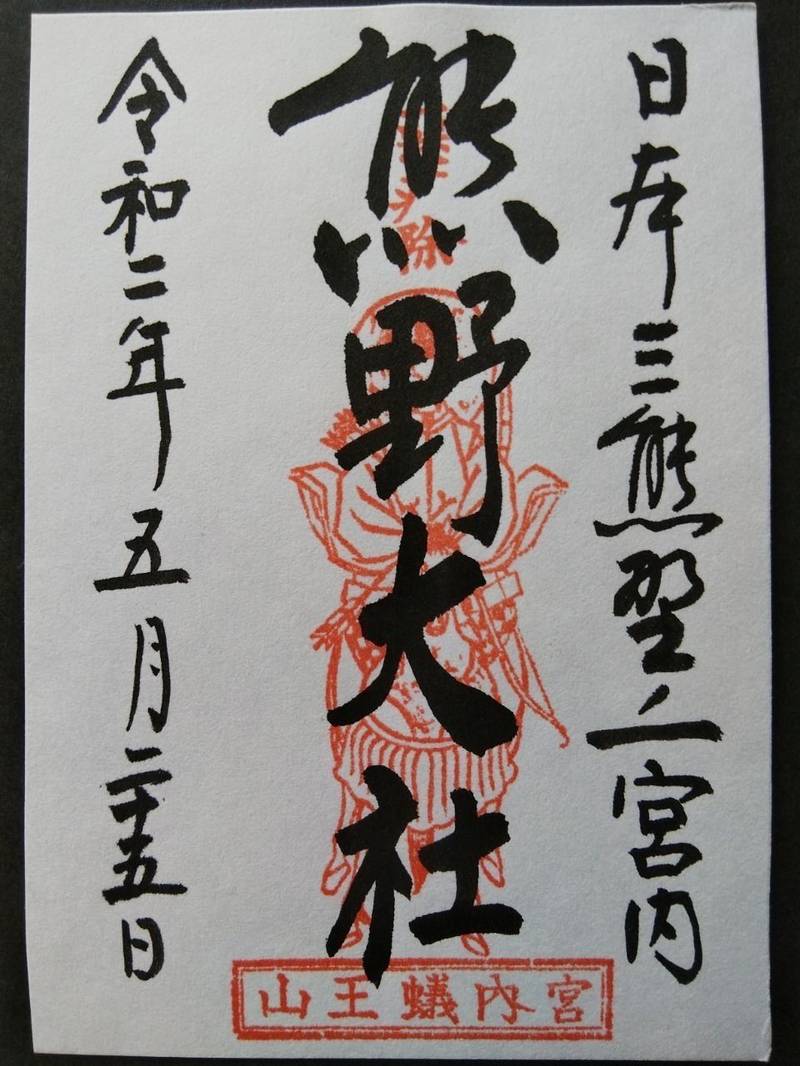 日本三熊野ノ一宮内
熊野大社
令和二年五月二十五日
宮内蟻王山